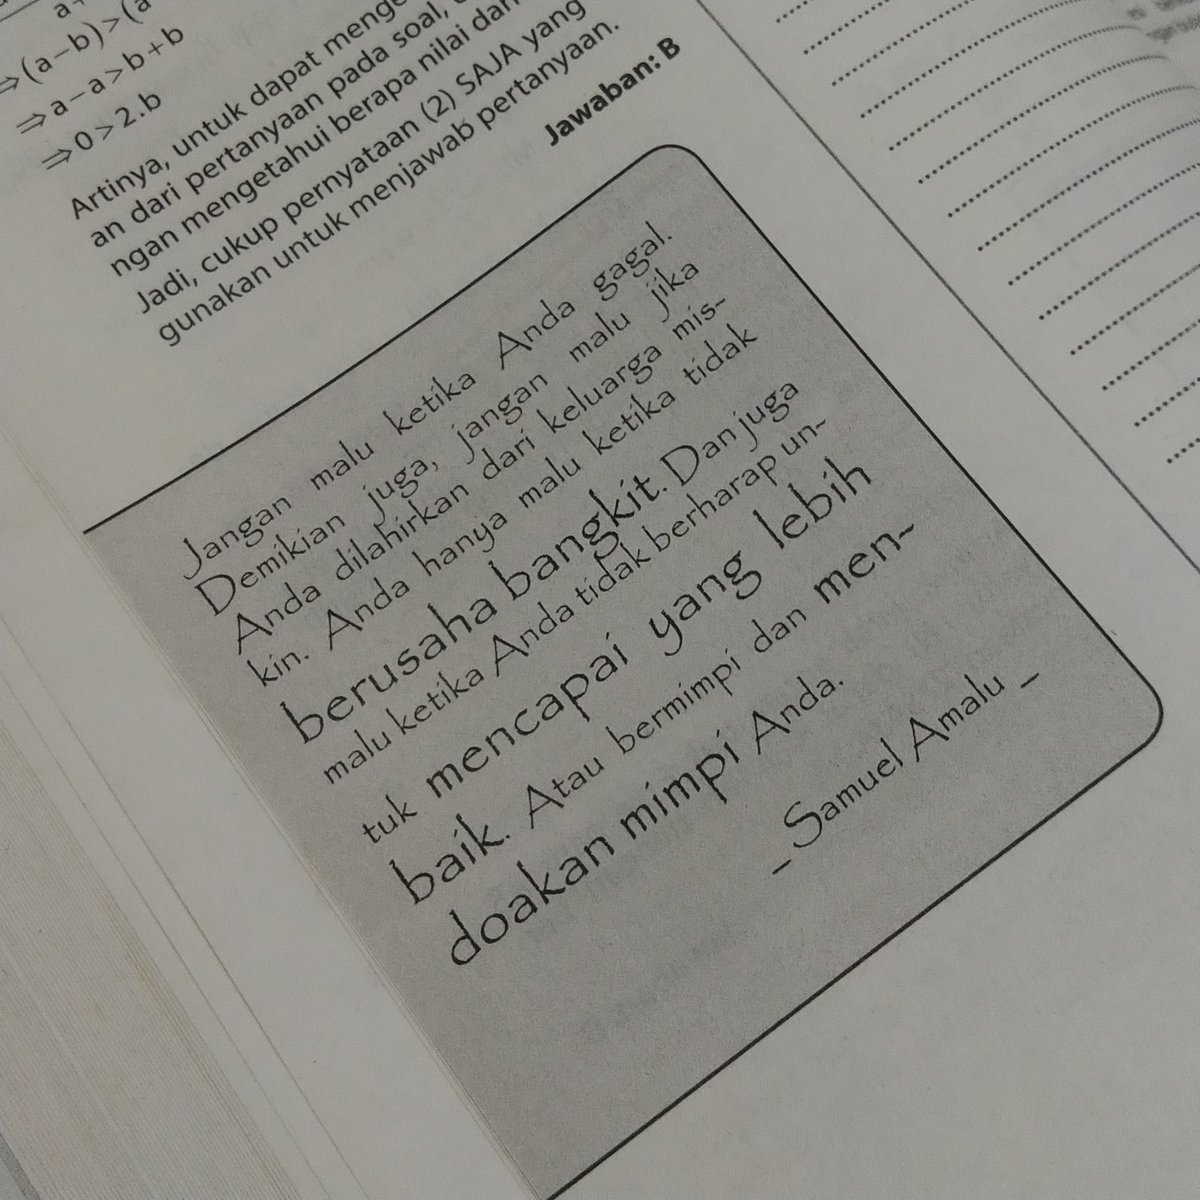 ⇒(a-b)>(a
⇒a-a>b+b
⇒0>2.b
Artinya, untuk dapat
an dari pertanyaan pada soal,
ngan mengetahui berapa nilai dari
Jadi, cukup pernyataan (2) SAJA yang
gunakan untuk menjawab pertanyaan.
Jawaban: B
Jangan malu ketika Anda gagal.
Demikian juga, jangan malu jika
Anda dilahirkan dari keluarga mis-
kin. Anda hanya malu ketika tidak
berusaha bangkit. Dan juga
malu ketika Anda tidak berharap un-
tuk mencapai yang lebih
baik. Atau bermimpi dan men-
doakan mimpi Anda.
_Samuel Amalu_